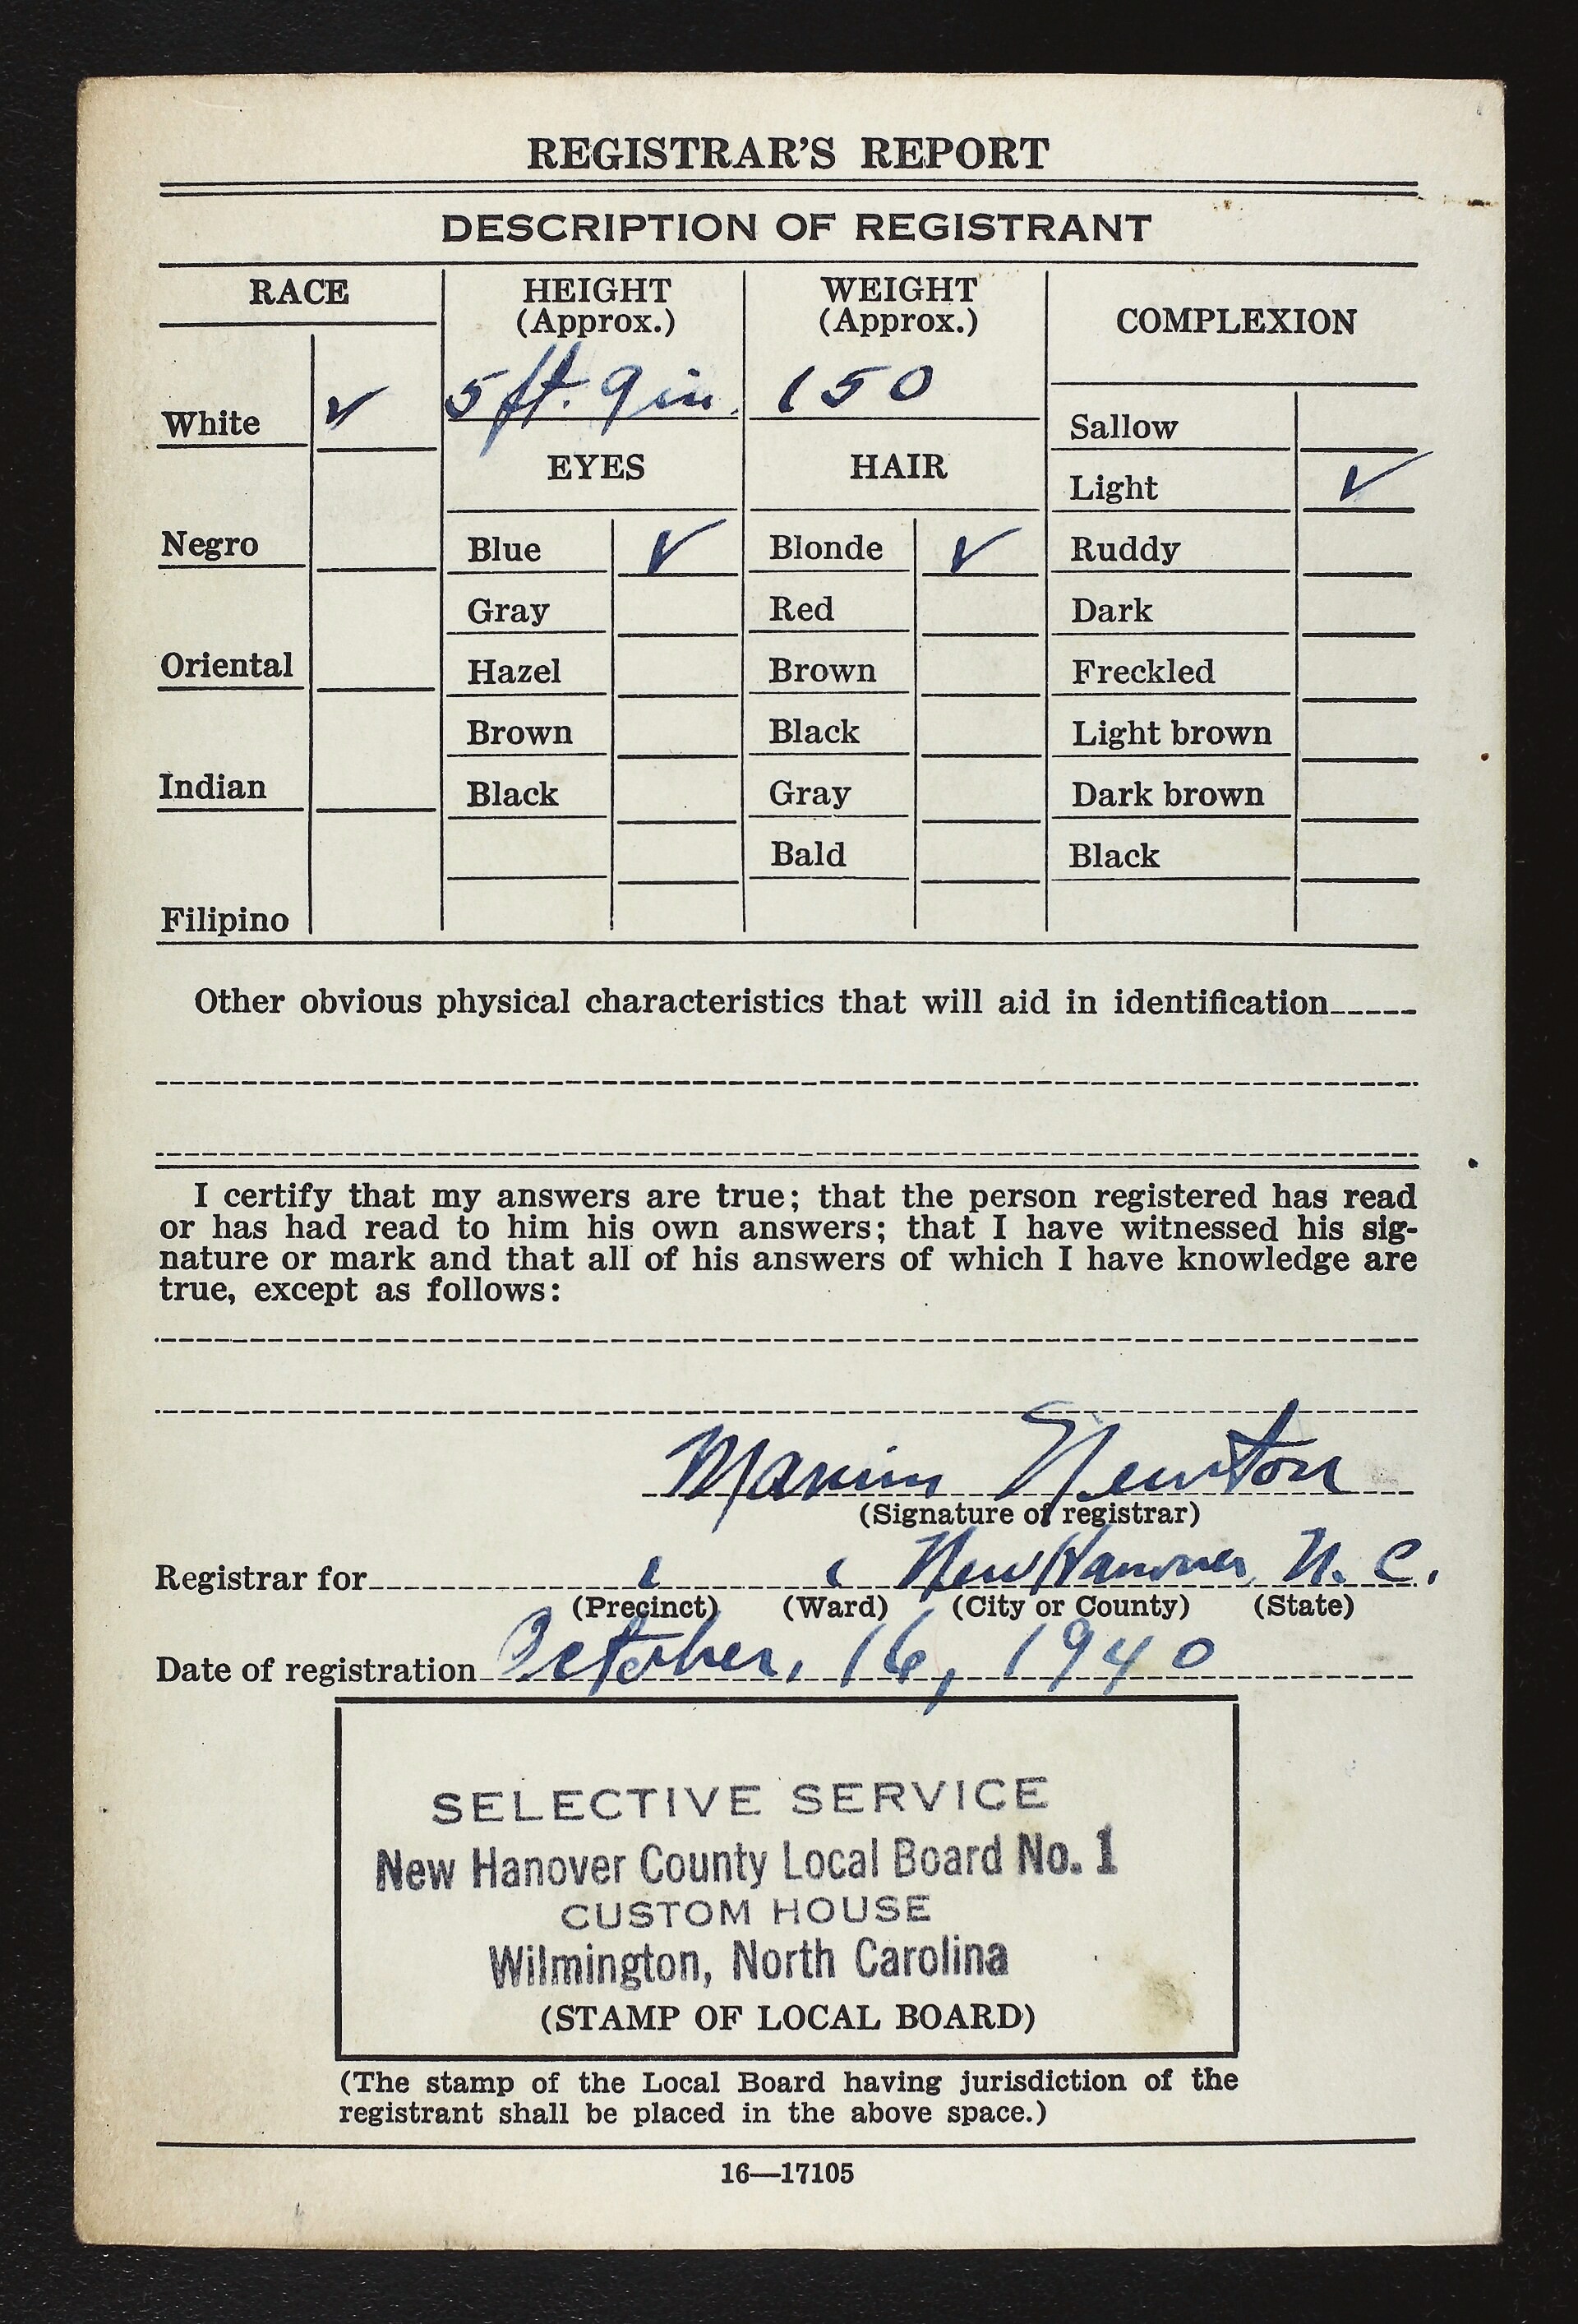 REGISTRAR'S REPORT
DESCRIPTION OF REGISTRANT
RACE
HEIGHT
(Approx.)
WEIGHT
(Approx.)
COMPLEXION
White ✓
5 ft. 9 in.
150
Sallow
EYES
HAIR
Light ✓
Negro
Blue ✓
Blonde ✓
Ruddy
Gray
Red
Dark
Oriental
Hazel
Brown
Freckled
Brown
Black
Light brown
Indian
Black
Gray
Dark brown
Bald
Black
Filipino
Other obvious physical characteristics that will aid in identification
I certify that my answers are true; that the person registered has read
or has had read to him his own answers; that I have witnessed his sig-
nature or mark and that all of his answers of which I have knowledge are
true, except as follows:
Newton
(Signature of registrar)
Registrar for 1 1 New Hanover N. C.
(Precinct) (Ward) (City or County) (State)
Date of registration October, 16, 1940
SELECTIVE SERVICE
New Hanover County Local Board No. 1
CUSTOM HOUSE
Wilmington, North Carolina
(STAMP OF LOCAL BOARD)
(The stamp of the Local Board having jurisdiction of the
registrant shall be placed in the above space.)
16—17105